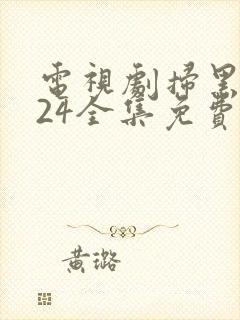 電視劇掃黑
24全集免費
黃璐